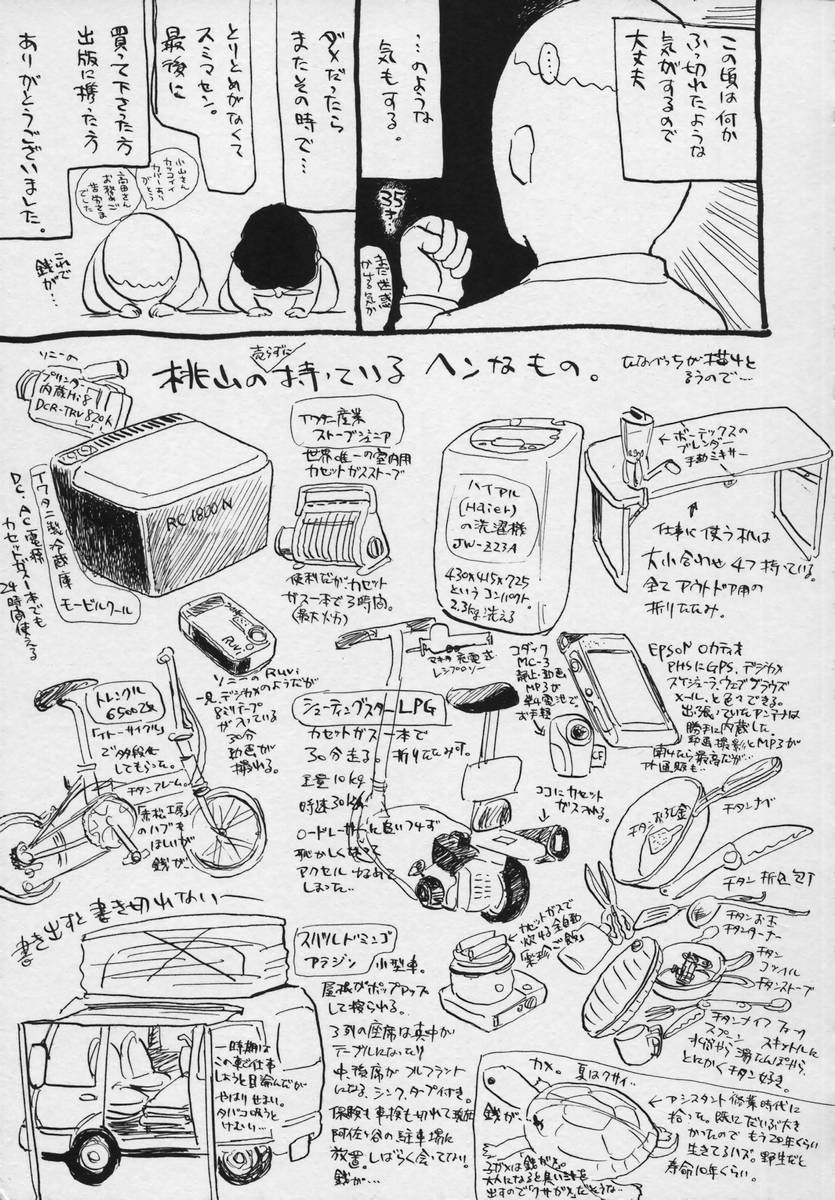 この頃は何か
ふっ切れたような
気がするので
大丈夫
…のような
気もする。
35才…
まだ迷惑
かける気か
ダメだったら
またその時で…
とりとめがなくて
スミマセン。
最後に
買って下さった方
出版に携った方
ありがとうございました。
小山さん
カッコイイ
カバーあり
がとう
高田さん
お務めご
苦労さま
でした
これで
銭が…
桃山の売らずに持っているヘンなもの。
ソニーの
プリンター
内蔵Hi8
DCR-TRV820K
RC1800N
イワタニ製冷蔵庫
モービルクール
DC、AC電源
カセットガス一本でも
24時間使える
イワタニ産業
ストーブジュニア
世界唯一の室内用
カセットガスストーブ
便利だがカセット
ガス一本で3時間。
(最大火力)
ハイアル
(Haier)
の洗濯機
JW-Z23A
430×415×725
というコンパクト。
2.3kg洗える
←ボーテックスの
ブレンダー
手動ミキサー
仕事に使う机は
大小合わせ4つ持っている。
全てアウトドア用の
折りたたみ。
ソニーのRuvi
一見、デジカメのようだが
8ミリテープ
が入っている
30分
動画が
撮れる。
トレンクル
6500改
「イトーサイクル」
で多段化
してもらった。
チタンフレーム。
「赤松工房」
のハブも
ほしいが
銭が…
マキタ充電式
レシプロソー
シューティングスターLPG
カセットガス一本で
30分走る。折りたたみ可。
重量10kg
時速30km
ロードレーサーに追いつけず
恥かしくなって
アクセルゆるめて
しまった…
ココにカセット
ガス入れる。
コダック
MC-3
静止・動画
MP3が
単4電池で
お手軽
EPSON ロカティオ
PHSにGPS、デジカメ
スケジューラ、ウェブブラウズ
メールと色々できる。
出っ張っていたアンテナは
勝手に内蔵した。
動画撮影とMP3が
チタンおろし金
チタンナベ
チタン折込包丁
チタンお玉
チタンターナー
チタン
コッヘル
チタンストーブ
チタンナイフ フォーク
スプーン スキットルに
水筒やら湯たんぽやら、
とにかくチタン好き。
カセットガスで
炊ける全自動
書き出すと書き切れない―
スバルドミンゴ
アラジン 小型車。
屋根がポップアップ
して撿られる。
3列の座席は真中が
テーブルになったり
中・後席がフルフラント
になる、シンク、タープ付き。
保険も車検も切れて現在
阿佐ヶ谷の駐車場に
放置。しばらく会ってない。
銭が…
一時期は
この車で仕事
しようと目論んだが
やはりせまい。
タバコ吸うと
けむい…
カメ。夏はクサイ
銭が…
←アシスタント修業時代に
拾った。既にだいぶ大き
かったのでもう20年くらい
生きてるハズ。野生だと
寿命10年くらい。